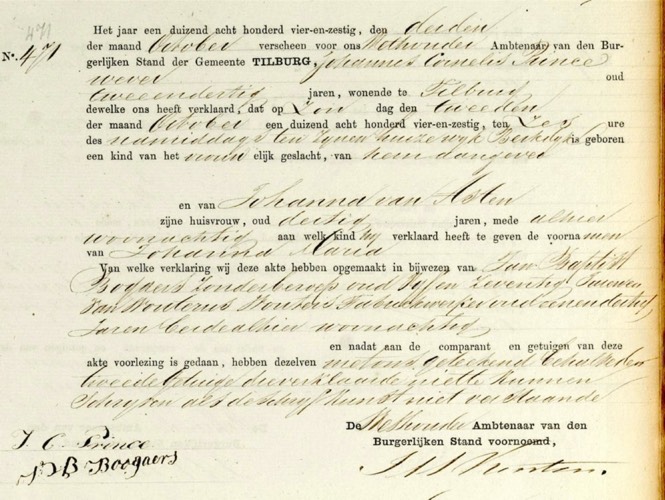 471
Het jaar een duizend acht honderd vier-en-zestig, den derden
der maand October verscheen voor ons Wethouder Ambtenaar van den Bur-
N°. 471 gerlijken Stand der Gemeente TILBURG, Johannes Cornelis Prince
wever oud
tweeendertig jaren, wonende te Tilburg
dewelke ons heeft verklaard, dat op Zon dag den tweeden
der maand October een duizend acht honderd vier-en-zestig, ten Zes ure
des namiddags ten zynen huize wyk Berkdyk is geboren
een kind van het vrouw elijk geslacht, van hem aangever
en van Johanna van Asten
zijne huisvrouw, oud dertig jaren, mede alhier
woonachtig aan welk kind hy verklaard heeft te geven de voorna men
van Johanna Maria
Van welke verklaring wij deze akte hebben opgemaakt in bijwezen van Jan Baptist
Bogaers zonder beroep oud vyf en zeventig Jaren en
van Wouterus Wouters Fabriekwerker oud eenendertig
Jaren beide alhier woonachtig
en nadat aan de comparant en getuigen van deze
akte voorlezing is gedaan, hebben dezelven met ons geteekend behalve den
tweede getuige die verklaarde niet te kunnen
Schryven als de schryfkunst niet verstaande
De Wethouder Ambtenaar van den
Burgerlijken Stand voornoemd,
J. C. Prince
J B Boogaers